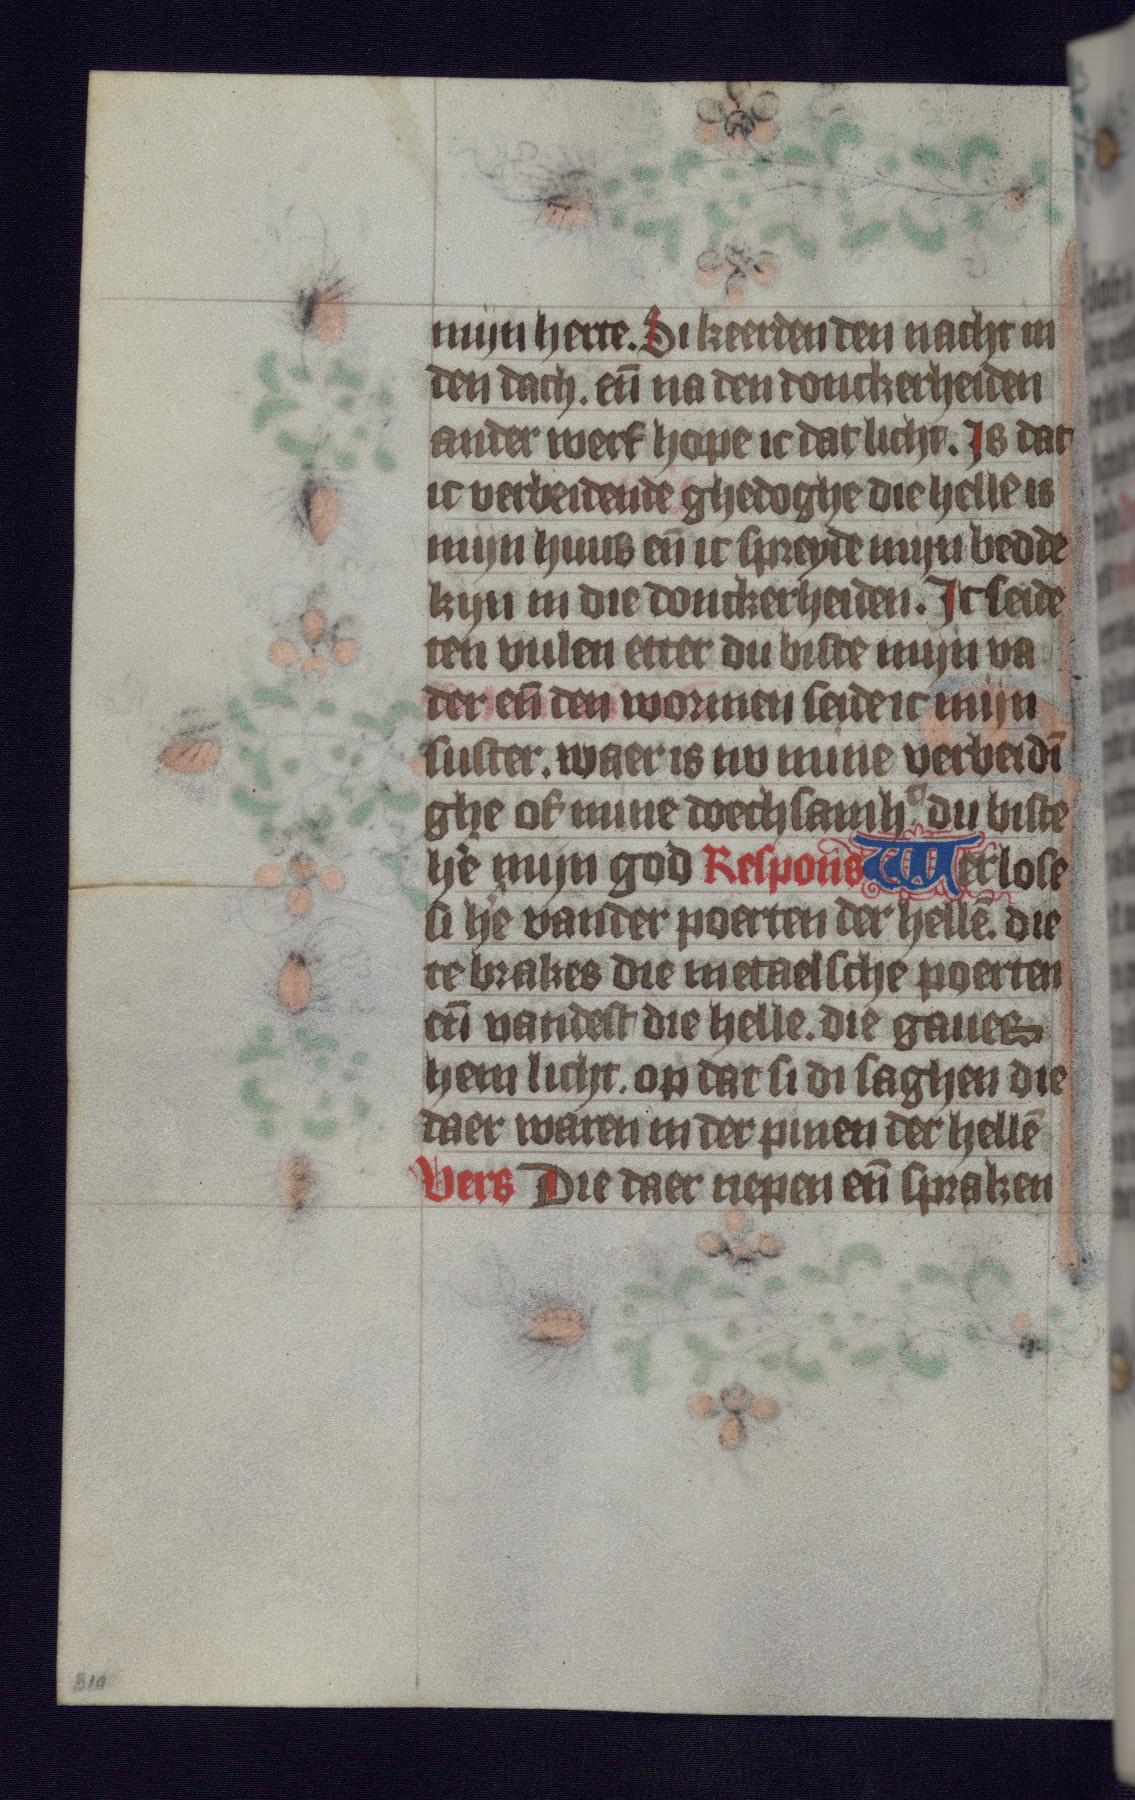 mijn herte. Si keerden den nacht in
den dach. eñ na den donckerheiden
ander werf hope ic dat licht. Is dat
ic verbeidende ghedoghe die helle is
mijn huus eñ ic spreyde mijn bedde
kijn in die donckerheiden. Ic seide
ten vulen etter du biste mijn va
der eñ den wormen seide ic mijn
suster. waer is nv mine verbeidī
ghe of mine doechsamhᵗ. du biste
he᷑ mijn god Respons Uerlose
si he᷑ vander poerten der hellē. die
te brakes die metaelsche poerten
eñ vandest die helle. die gaues
hem licht. op dat si di saghen die
daer waren in der pinen der hellē
Vers Die daer riepen eñ spraken